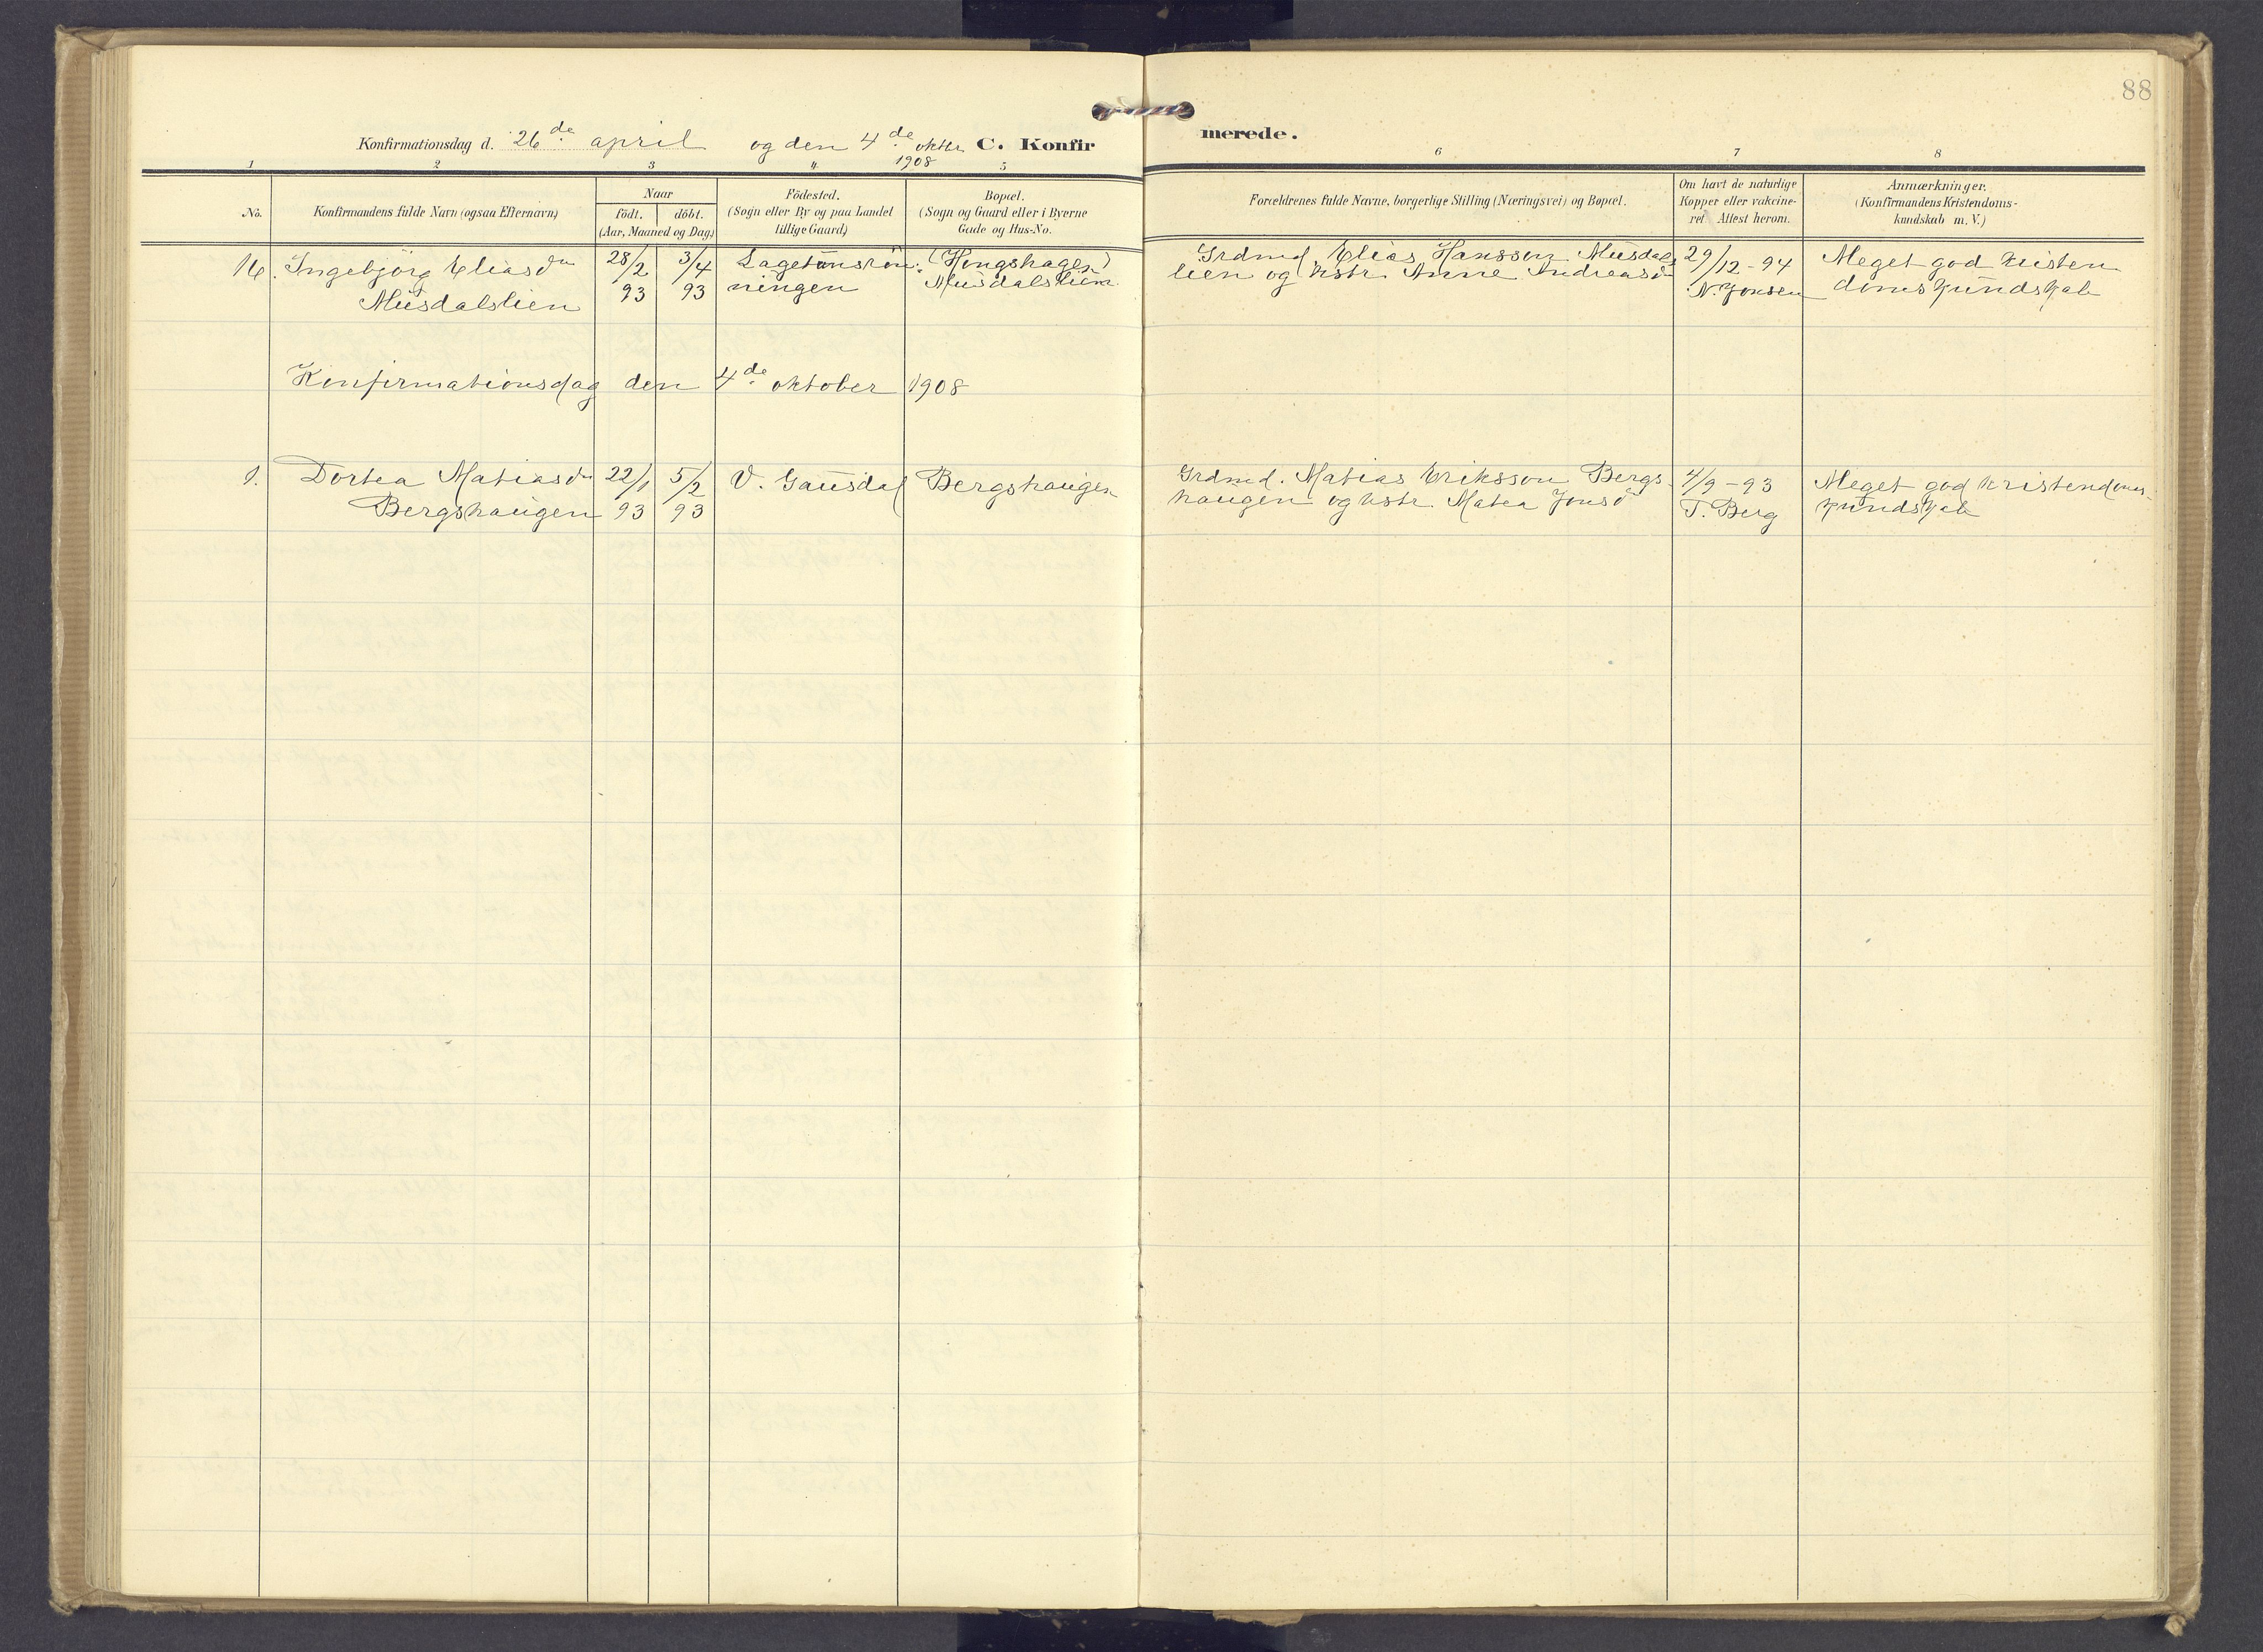 88
Konfirmationsdag d. 26de april og den 4de oktbr. 1908 C. Konfirmerede.
1 2 3 4 5 6 7 8
No.
Konfirmandens fulde Navn (ogsaa Efternavn)
Naar
födt. döbt.
(Aar, Maaned og Dag.)
Födested.
(Sogn eller By og paa Landet
tillige Gaard)
Bopæl.
(Sogn og Gaard eller i Byerne
Gade og Hus-No.
Forældrenes fulde Navne, borgerlige Stilling (Næringsvei) og Bopæl.
Om havt de naturlige
Kopper eller vakcine-
ret. Attest herom.
Anmærkninger.
(Konfirmandens Kristendoms-
kundskab m. V.)
16. Ingebjörg Eliasdn
Musdalslien
28/2 93
3/4 93
ningen
Musdalslien
Grdmd Elias Hanssen Musdals
lien og hstr Anne Andreasdn
29/12-94
N. Jonsen
Meget god kristen
domskundskab
Konfirmationsdag den 4de oktober 1908
1. Dortea Matiasdn
Bergshaugen
22/1 93
5/2 93
V. Gausdal
Bergshaugen
Grdmd. Matias Eriksson Bergs-
haugen og hstr. Matea Jonsd
4/9-93
T. Berg
Meget god kristendoms-
kundskab